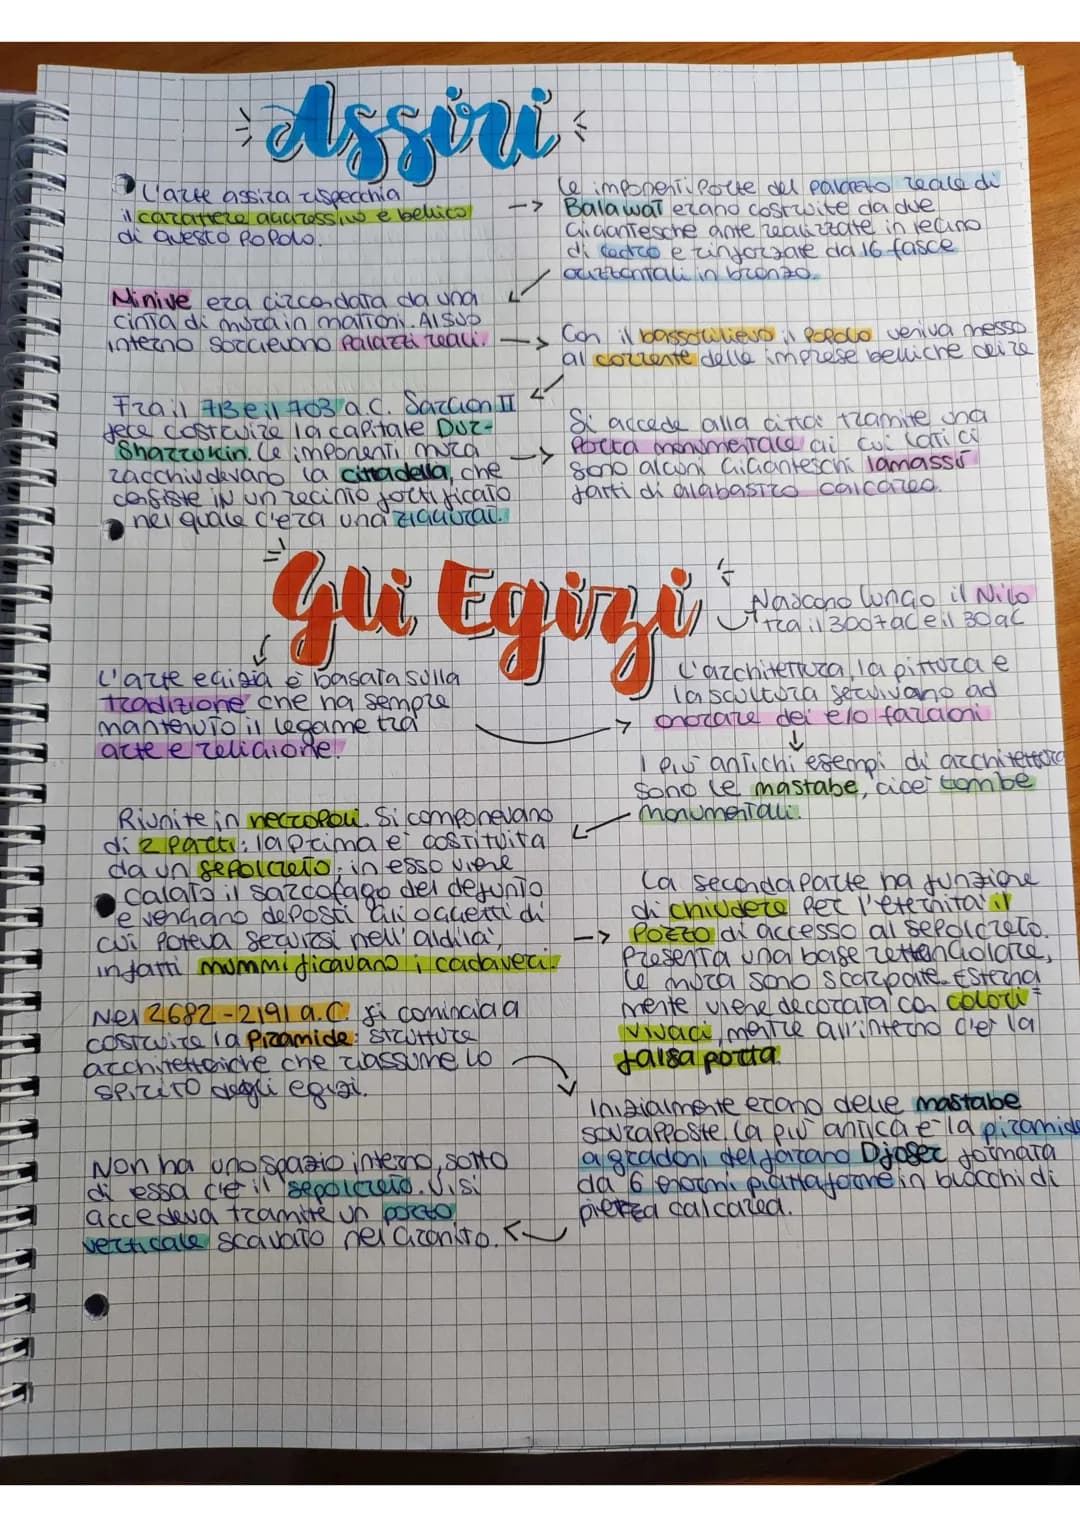 Assiri
L'arte assira rispecchia
il carattere aggressivo e bellico
di questo popolo.
Le imponenti porte del palazzo reale di
Balawat erano costruite da due
gigantesche ante realizzate in legno
di cedro e rinforzate da 16 fasce
orizzontali in bronzo.
Ninive era circondata da una
cinta di mura in mattoni. Al suo
interno sorgevano palazzi reali.
Con il bassorilievo il popolo veniva messo
al corrente delle imprese belliche dei re
Fra il 713 e il 703 a.C. Sargon II
fece costruire la capitale Dur-
Sharrukin. Le imponenti mura
racchiudevano la cittadella, che
consiste in un recinto fortificato
nel quale c'era una ziqqurat.
Si accede alla città tramite una
porta monumentale ai cui lati ci
sono alcuni giganteschi lamassù
fatti di alabastro calcareo.
Gli Egizi
Nascono lungo il Nilo
tra il 3007 a.C e il 30 a.C
L'arte egizia è basata sulla
tradizione che ha sempre
mantenuto il legame tra
arte e religione.
L'architettura, la pittura e
la scultura servivano ad
onorare dei e/o faraoni
I più antichi esempi di architettura
sono le mastabe, cioè tombe
monumentali.
Riunite in necropoli. Si componevano
di 2 parti: la prima è costituita
da un sepolcreto; in esso viene
calato il sarcofago del defunto
e vengano deposti gli oggetti di
cui poteva servirsi nell'aldilà,
infatti mummificavano i cadaveri.
La seconda parte ha funzione
di chiudere per l'eternità il
pozzo di accesso al sepolcreto.
Presenta una base rettangolare,
le mura sono scarpate. Esterna
mente viene decorata con colori
vivaci, mentre all'interno c'è la
falsa porta.
Nel 2682-2191 a.C. si comincia a
costruire la piramide: strutture
architettoniche che riassume lo
spirito degli egizi.
Inizialmente erano delle mastabe
sovrapposte. La più antica è la piramide
a gradoni del faraono Djoser formata
da 6 enormi piattaforme in blocchi di
pietra calcarea.
Non ha uno spazio interno, sotto
di essa c'è il sepolcreto. Vi si
accedeva tramite un pozzo
verticale scavato nel granito.